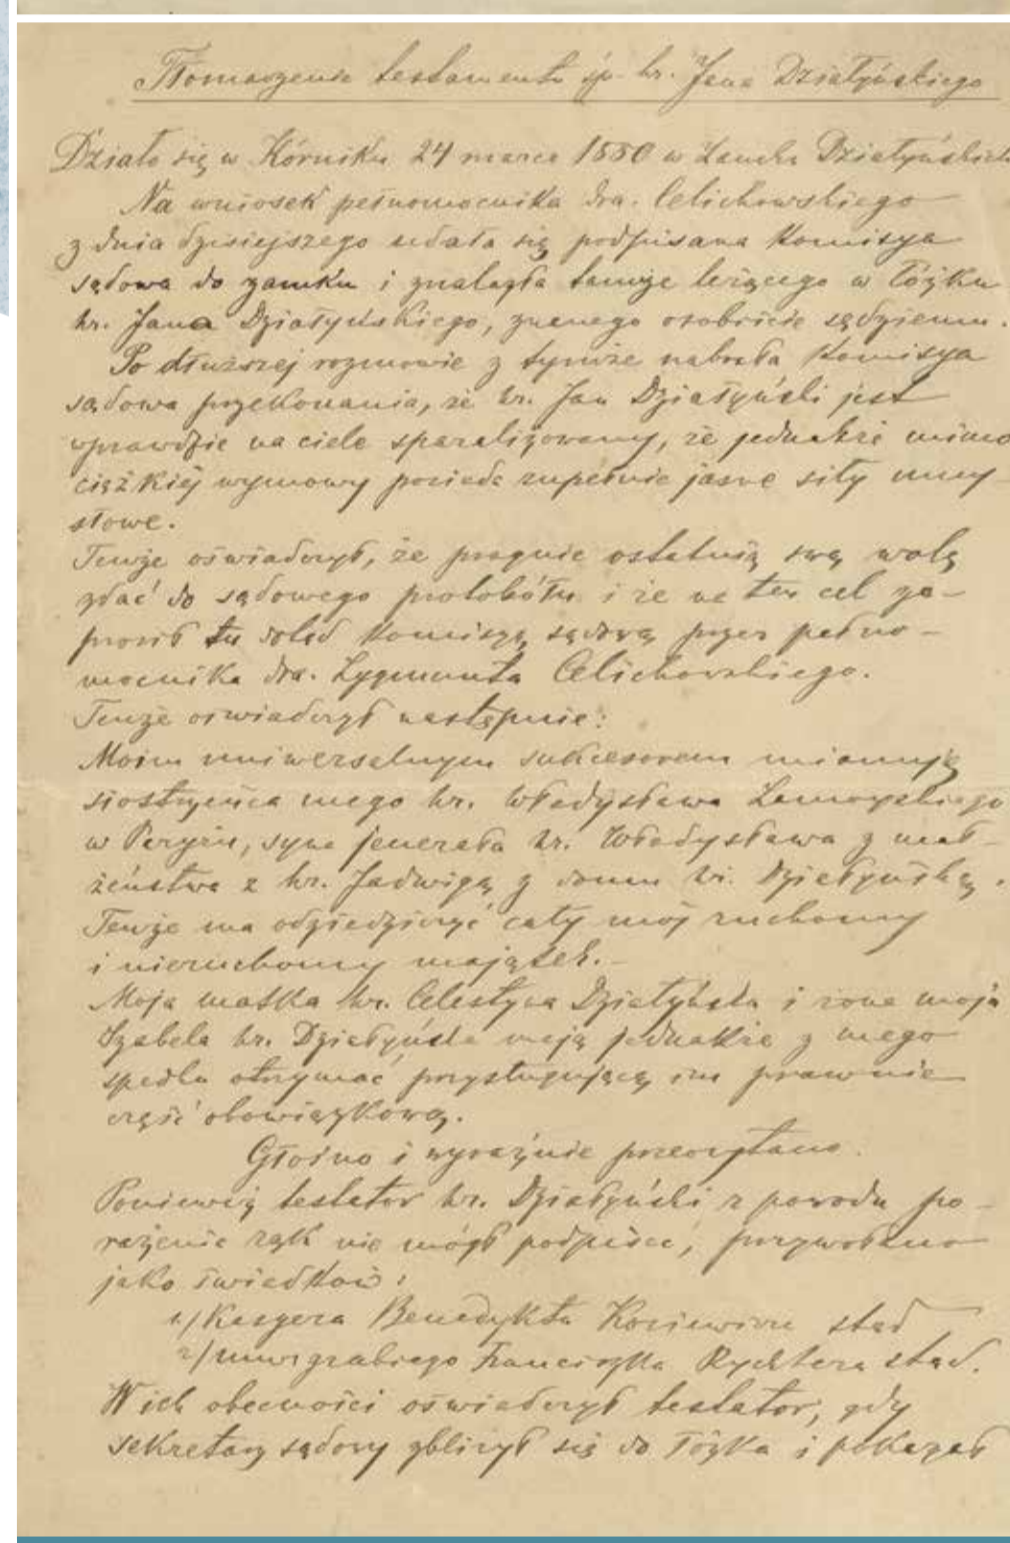 Tłomaczenie testamentu śp. hr. Jana Działyńskiego
Działo się w Kórniku 24 marca 1880 w zamku Działyńskich
Na wniosek pełnomocnika dra. Celichowskiego
z dnia dzisiejszego udała się podpisana Komisya
sądowa do zamku i znalazła tamże leżącego w łóżku
hr. Jana Działyńskiego, znanego osobiście sędziemu.
Po dłuższej rozmowie z tymże nabrała Komisya
sądowa przekonania, że hr. Jan Działyński jest
wprawdzie na ciele sparaliżowany, że jednakże mimo
ciężkiéj wymowy posiada zupełnie jasne siły umy-
słowe.
Tenże oświadczył, że pragnie ostatnią swą wolę
zdać do sądowego protokółu i że na ten cel za-
prosił tu dotąd Komisyą sądową przez pełno-
mocnika dra. Zygmunta Celichowskiego.
Tenże oświadczył następnie:
Moim uniwersalnym sukcesorem mianuję
siostrzeńca mego hr. Władysława Zamoyskiego
w Paryżu, syna jenerała hr. Władysława z mał-
żeństwa z hr. Jadwigą z domu hr. Działyńską.
Tenże ma odziedziczyć cały mój ruchomy
i nieruchomy majątek.-
Moja matka hr. Celestyna Działyńska i żona moja
Izabela hr. Działyńska mają jednakże z mego
spadku otrzymać przysługującą im prawnie
część obowiązkową.
Głośno i wyraźnie przeczytano.
Ponieważ testator hr. Działyński z powodu po-
rażenia rąk nie mógł podpisać, przywołano
jako świadków:
1/ Kasyera Benedykta Koniewicza stąd
2/ murgrabiego Franciszka Rychtera stąd.
W ich obecności oświadczył testator, gdy
sekretarz sądowy zbliżył się do łóżka i pokazał